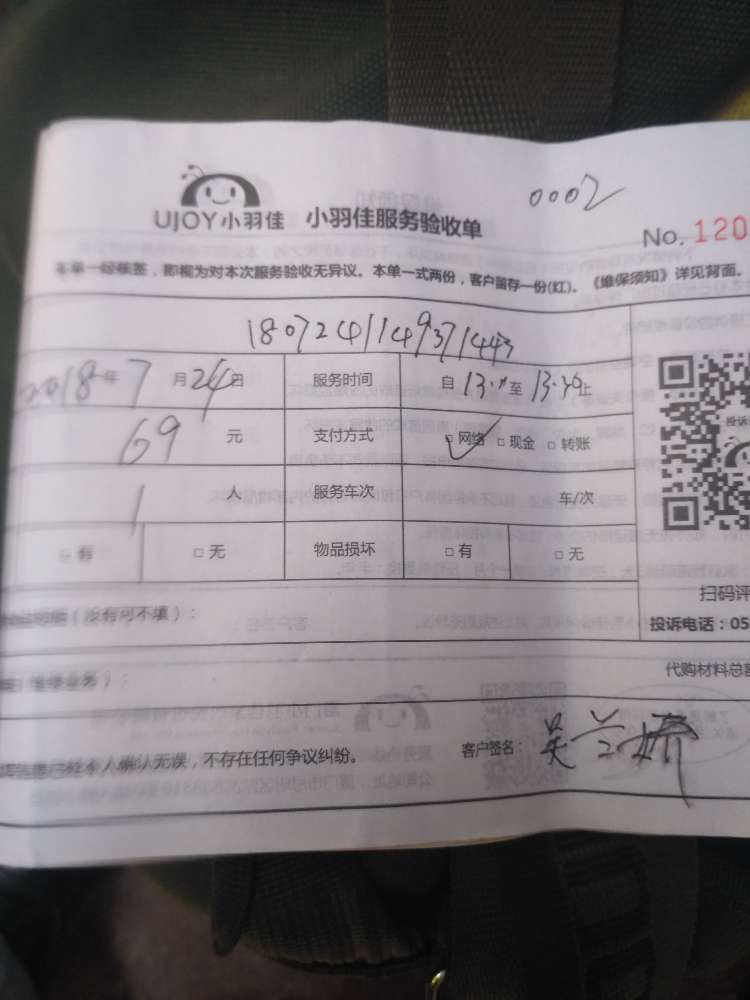 0002
UJOY小羽佳 小羽佳服务验收单
No. 120
本单一经核签，即视为对本次服务验收无异议。本单一式两份，客户留存一份(红)。《维保须知》详见背面。
1807241149371443
2018年7月24日 服务时间 自 13. 至 13.30止
69 元 支付方式 □网络 □现金 □转账
1 人 服务车次 车/次
□有 □无 物品损坏 □有 □无
扫码评
（没有可不填）：
投诉电话：05
代购材料总
已经本人确认无误，不存在任何争议纠纷。 客户签名：吴兰娇